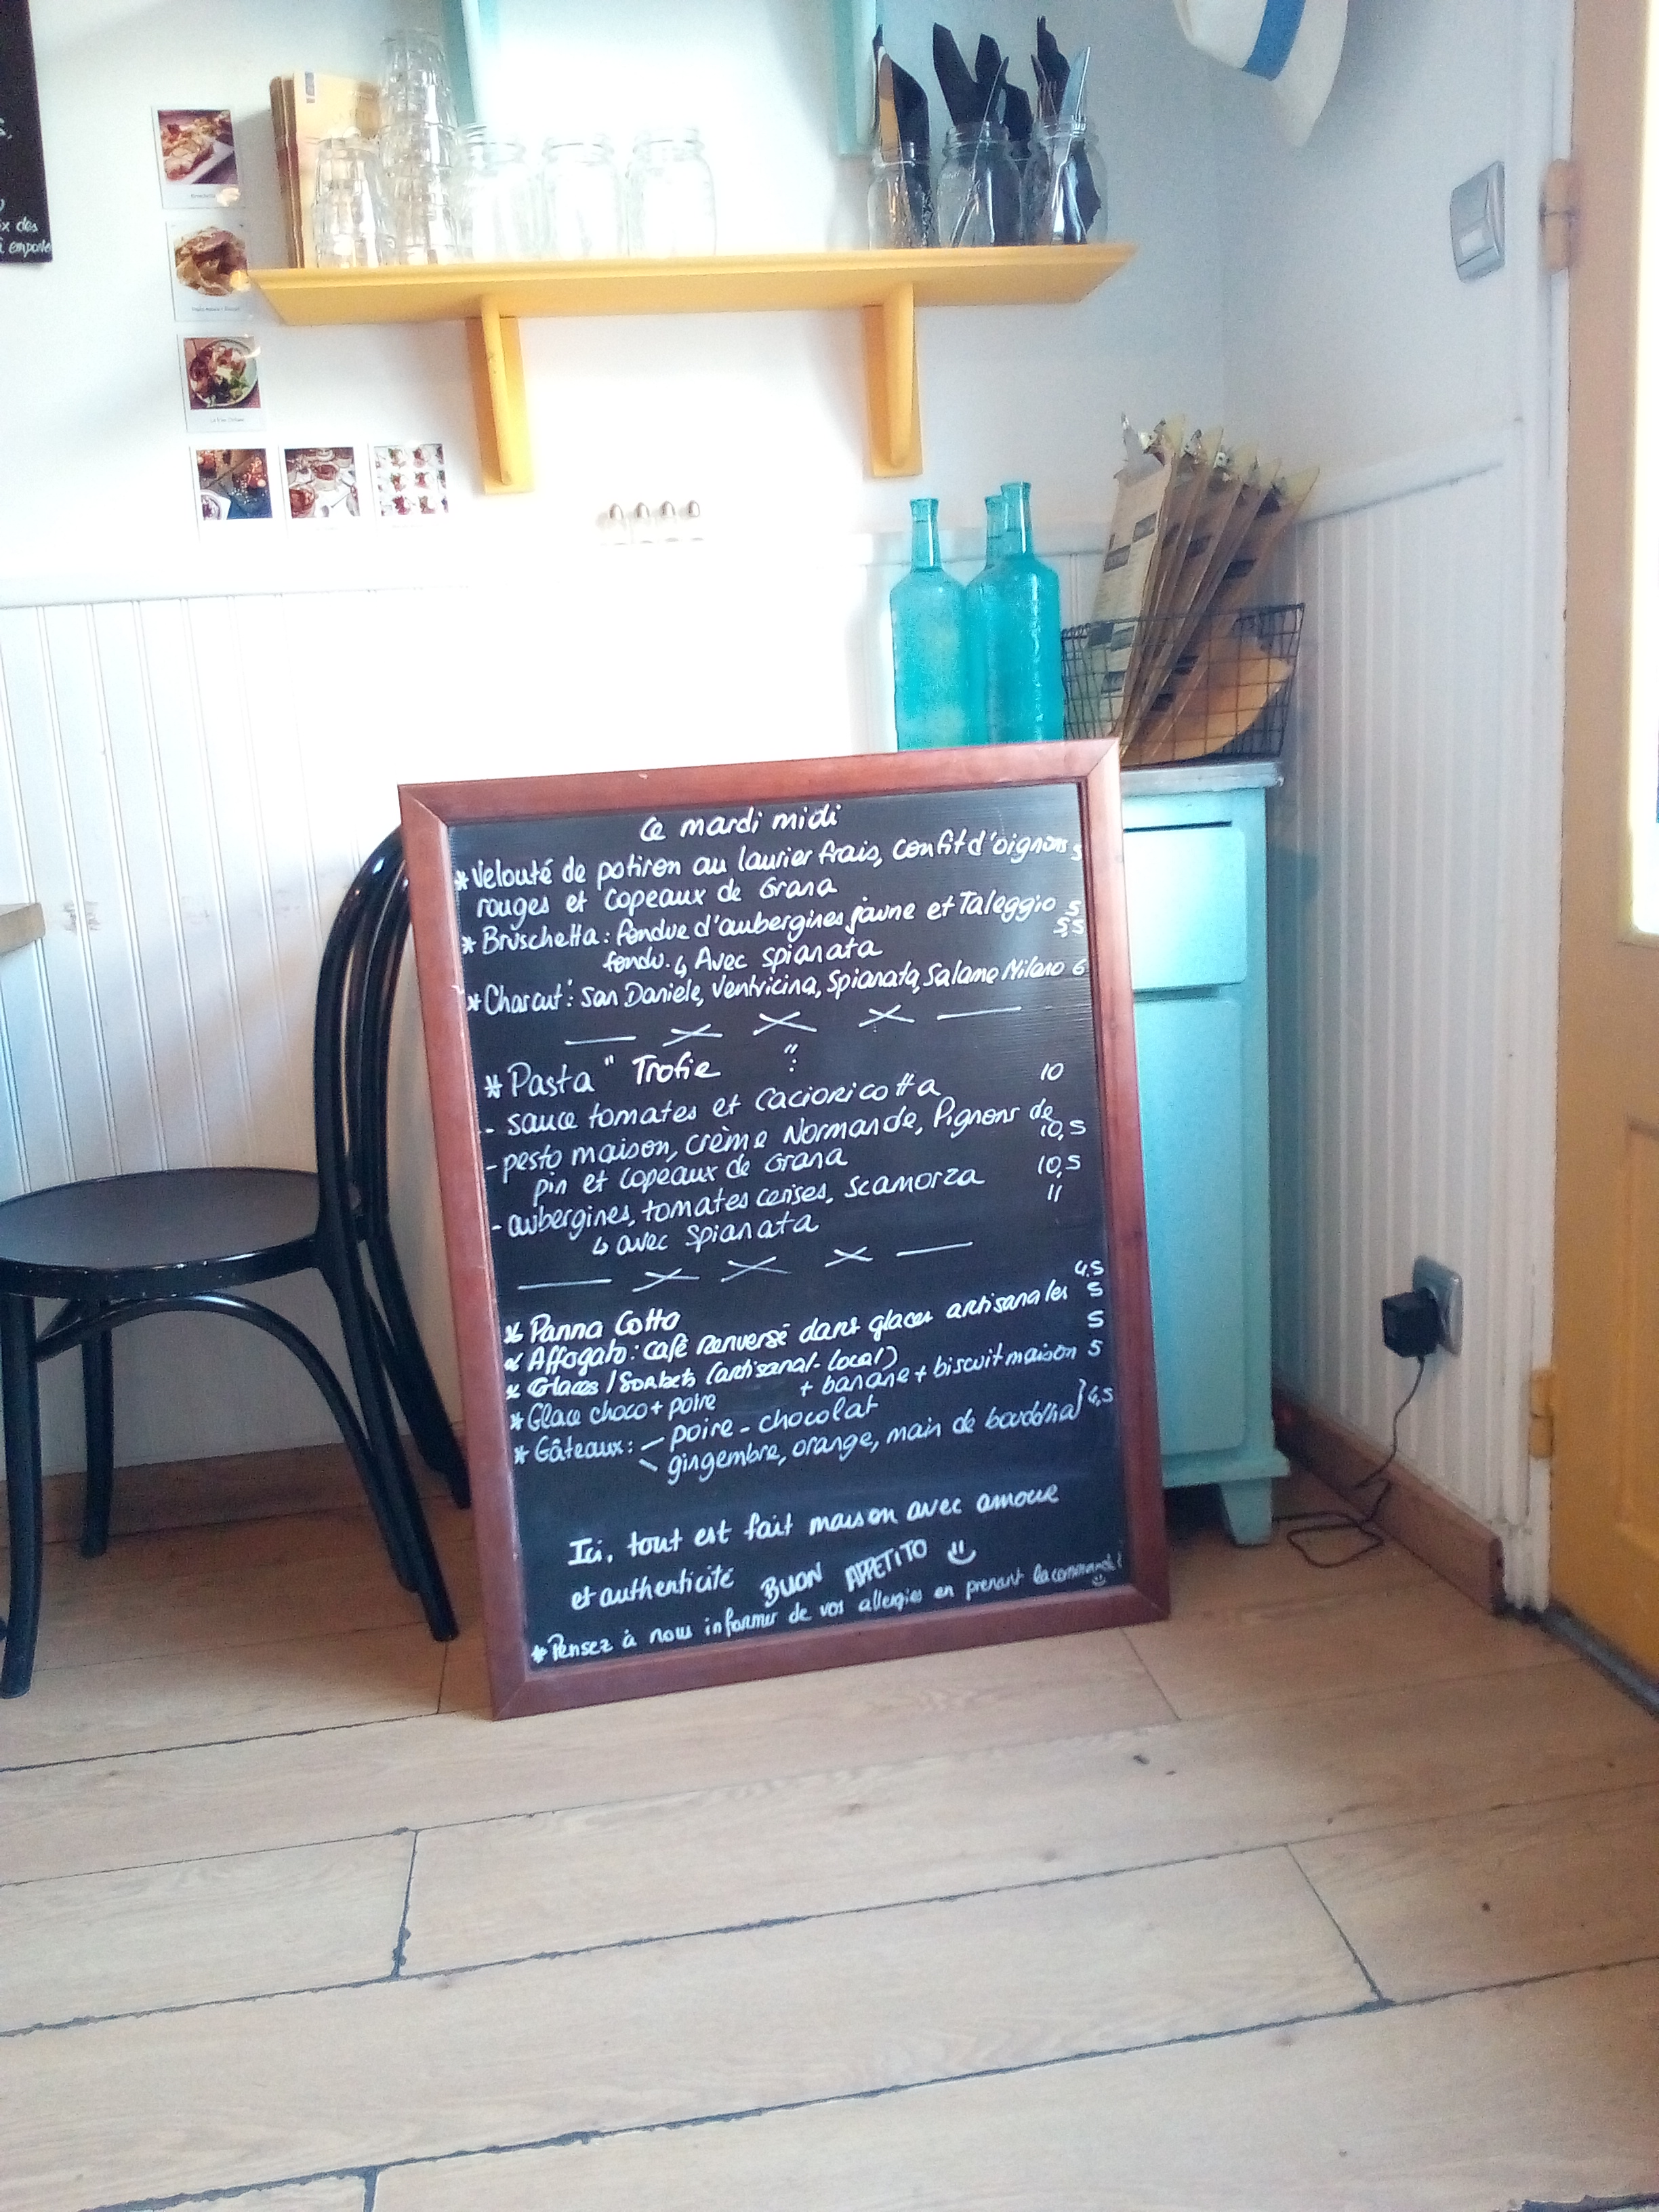 x des
à emporte
Ce mardi midi
*Velouté de potiron au laurier frais, confit d'oignons 5
rouges et copeaux de Grana
*Bruschetta: fondue d'aubergines jaune et Taleggio 5
fondu. ↳ Avec spianata 5,5
*Charcut': San Daniele, Ventricina, Spianata, Salame Milano 6
*Pasta "Trofie":
- sauce tomates et Cacioricotta 10
- pesto maison, crème Normande, Pignons de
pin et copeaux de Grana 10,5
- aubergines, tomates cerises, scamorza 10,5
↳ avec Spianata 11
* Panna Cotta 4,5
* Affogato: café renversé dans glaces artisanales 5
* Glaces/Sorbets (artisanal-local) 5
*Glace choco + poire + banane + biscuit maison 5
* Gâteaux: - poire - chocolat
- gingembre, orange, main de bouddha } 4,5
Ici, tout est fait maison avec amour
et authenticité BUON APPETITO
*Pensez à nous informer de vos allergies en prenant la commande!